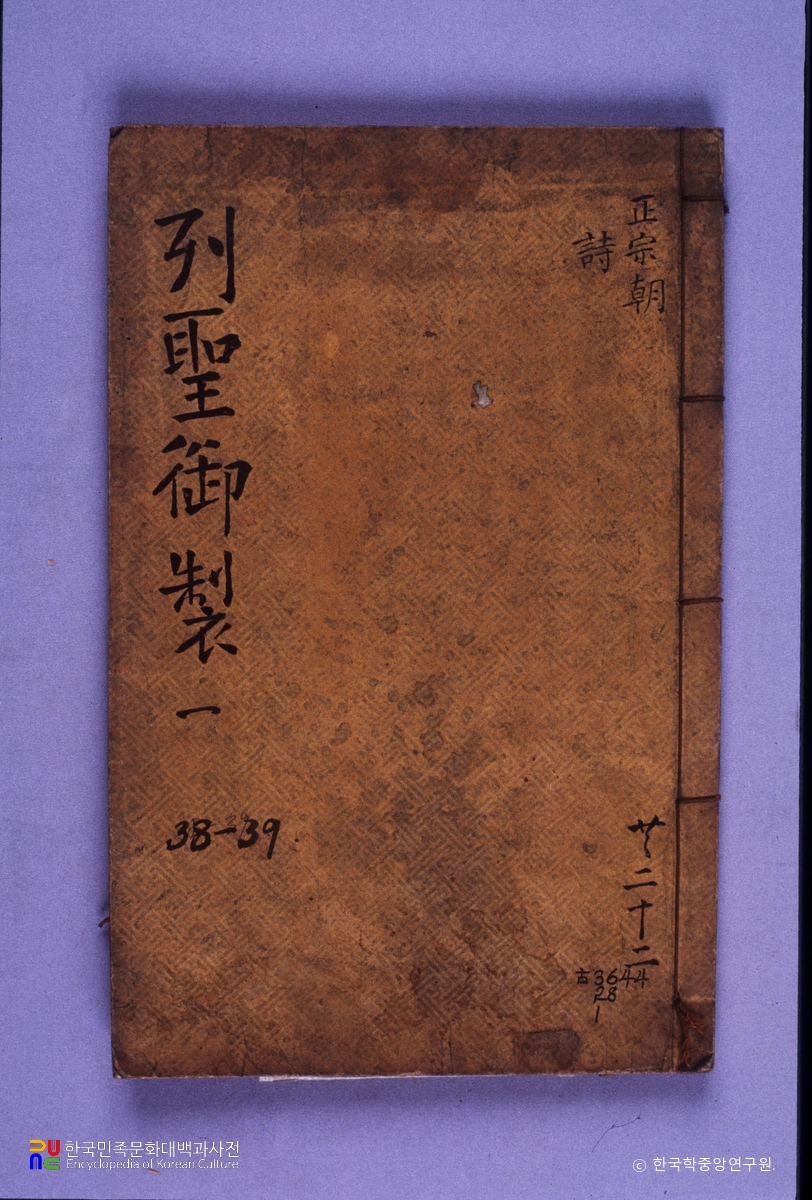 正宗朝
詩
列聖御製 一
38-39
共二十二
古3644
28
1
한국민족문화대백과사전
Encyclopedia of Korean Culture
ⓒ 한국학중앙연구원.